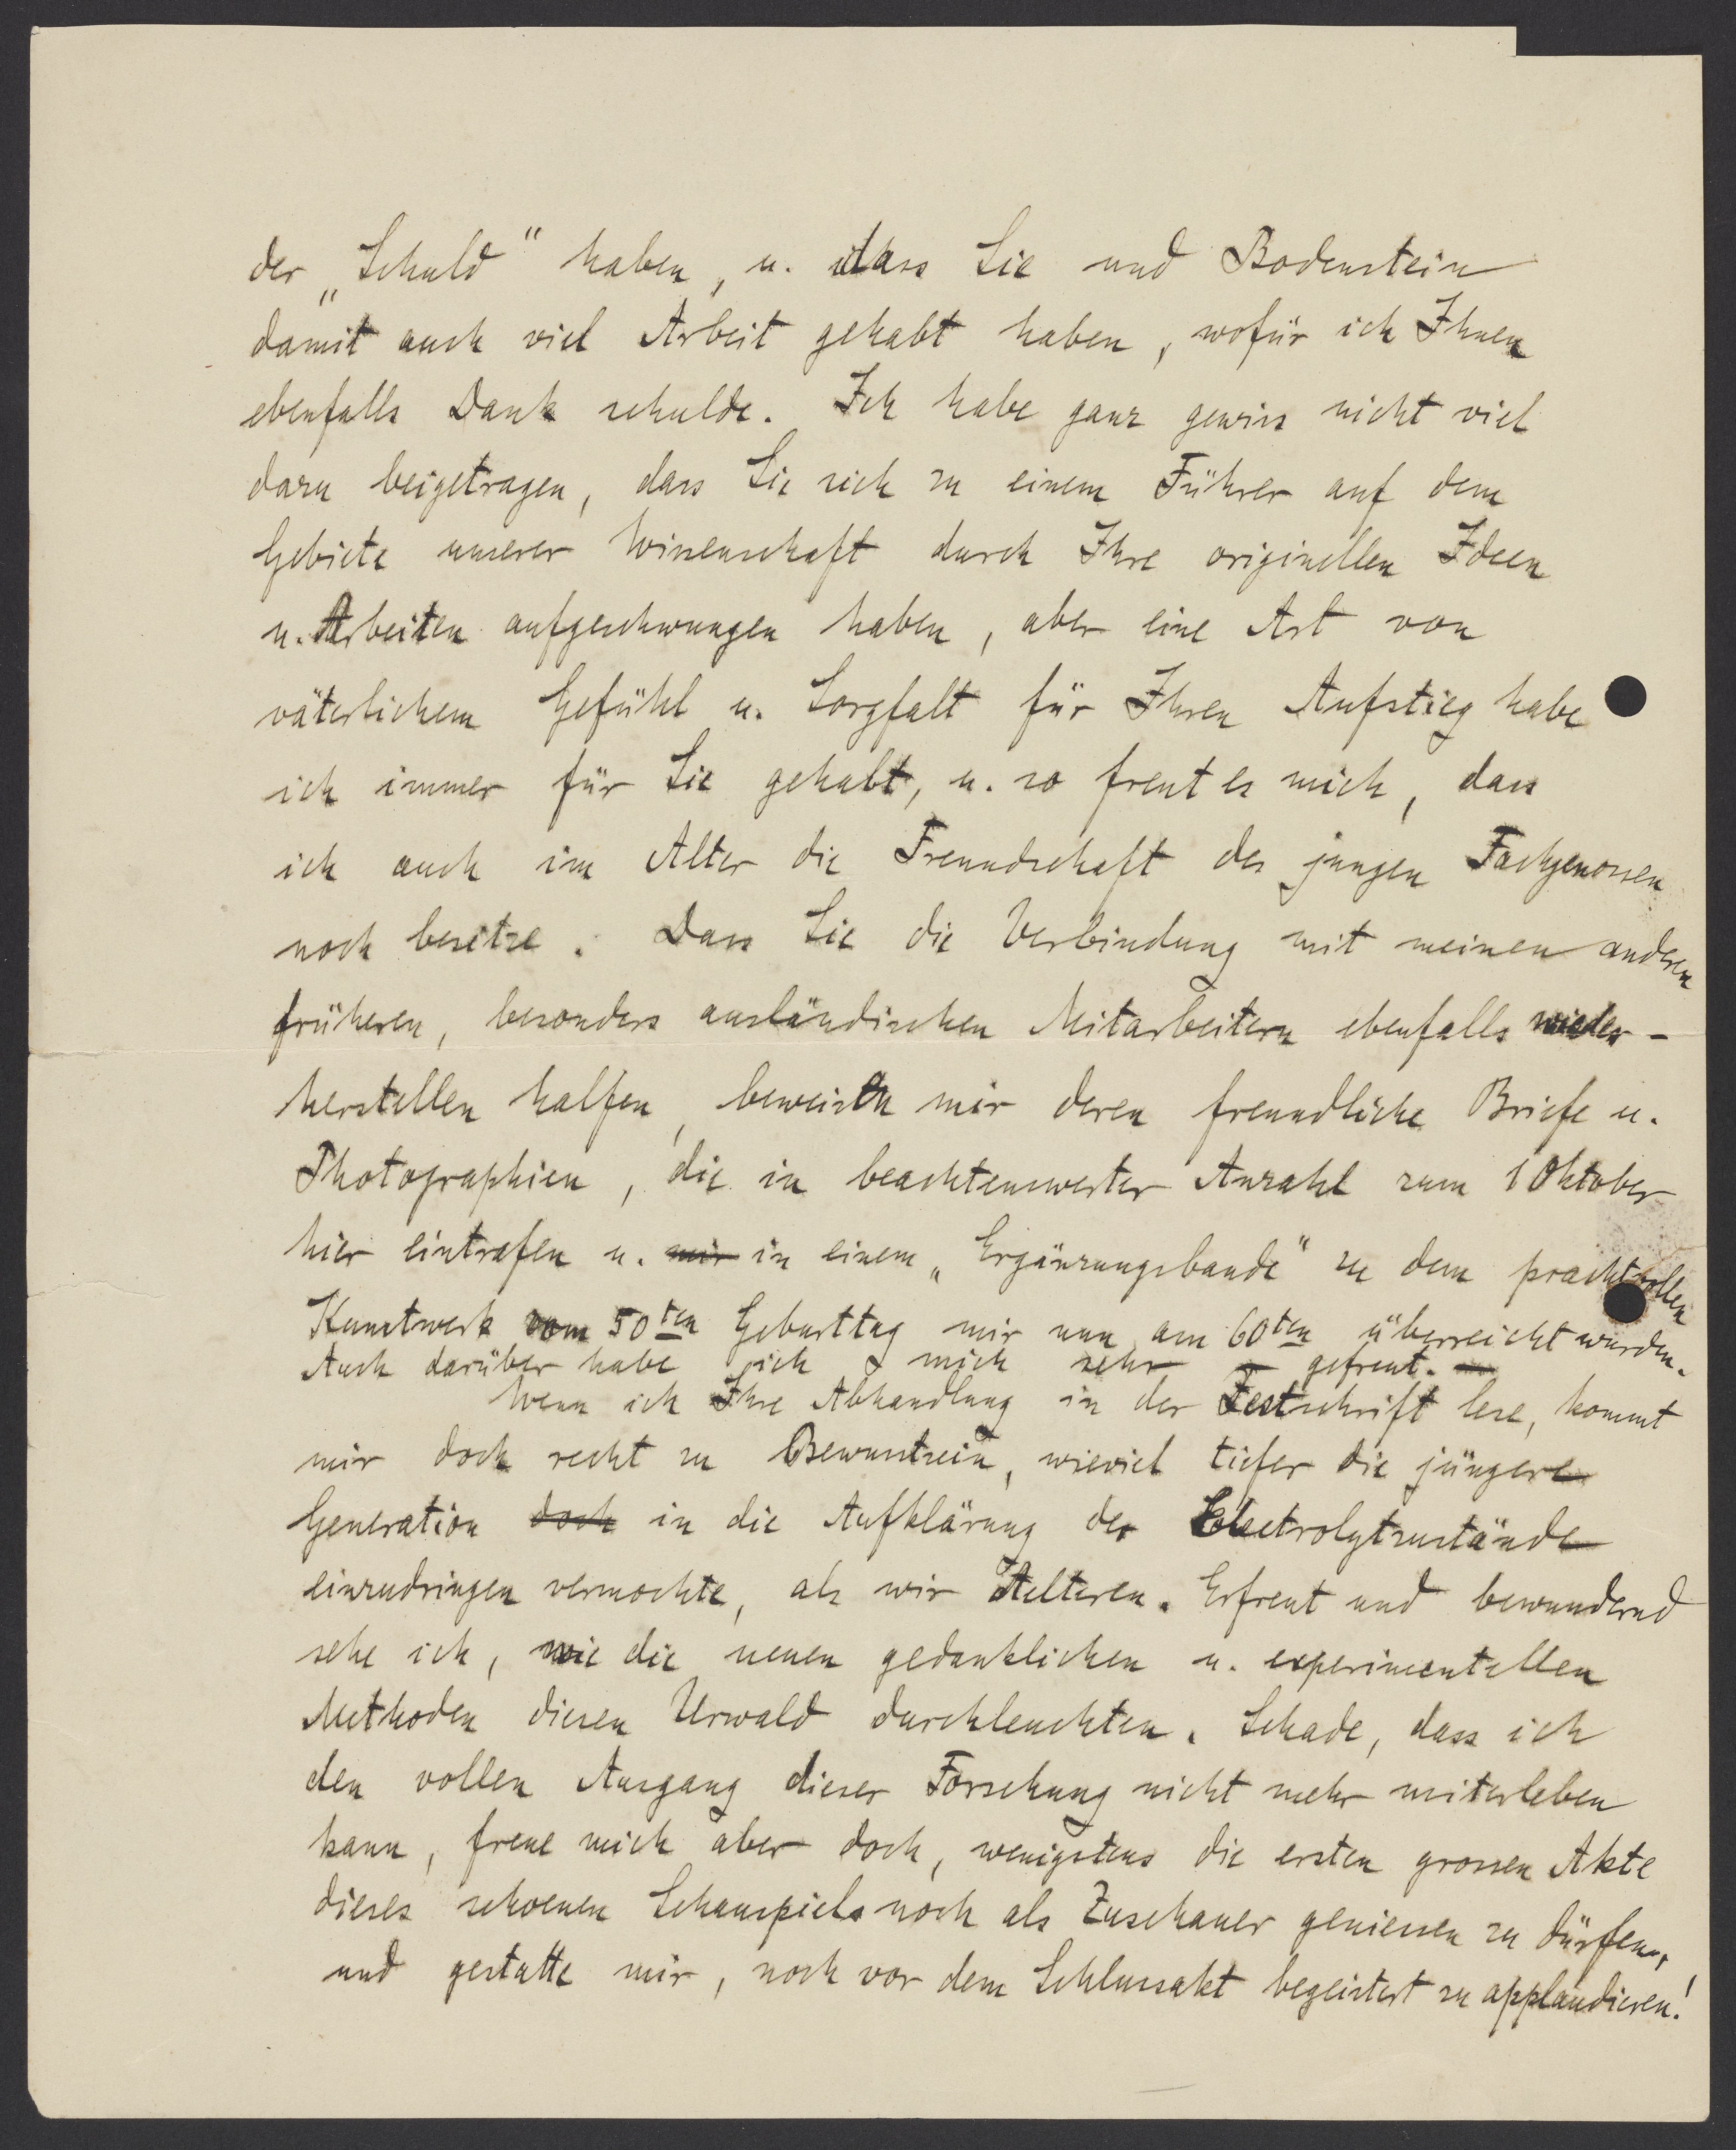 der „Schuld" haben, u. dass Sie und Bodenstein
damit auch viel Arbeit gehabt haben, wofür ich Ihnen
ebenfalls Dank schulde. Ich habe ganz gewiss nicht viel
dazu beigetragen, dass Sie sich zu einem Führer auf dem
Gebiete unserer Wissenschaft durch Ihre originellen Ideen
u. Arbeiten aufgeschwungen haben, aber eine Art von
väterlichem Gefühl u. Sorgfalt für Ihren Aufstieg habe
ich immer für Sie gehabt, u. so freut es mich, dass
ich auch im Alter die Freundschaft des jungen Fachgenossen
noch besitze. Dass Sie die Verbindung mit meinen anderen
früheren, besonders ausländischen Mitarbeitern ebenfalls wieder-
herstellen halfen, beweisen mir deren freundliche Briefe u.
Photographien, die in beachtenswerter Anzahl zum 1 Oktober
hier eintrafen u. mir in einem „Ergänzungsbande" zu dem prachtvollen
Kunstwerk vom 50ten Geburttag mir nun am 60ten überreicht wurden.
Auch darüber habe ich mich sehr gefreut. —
Wenn ich Ihre Abhandlung in der Festschrift lese, kommt
mir doch recht zu Bewusstsein, wieviel tiefer die jüngere
Generation doch in die Aufklärung der Elektrolytzustände
einzudringen vermochte, als wir Aelteren. Erfreut und bewundernd
sehe ich, wie die neuen gedanklichen u. experimentellen
Methoden diesen Urwald durchleuchten. Schade, dass ich
den vollen Ausgang dieser Forschung nicht mehr miterleben
kann, freue mich aber doch, wenigstens die ersten grossen Akte
dieses schoenen Schauspiels noch als Zuschauer geniessen zu dürfen,
und gestatte mir, noch vor dem Schlussakt begeistert zu applaudieren!